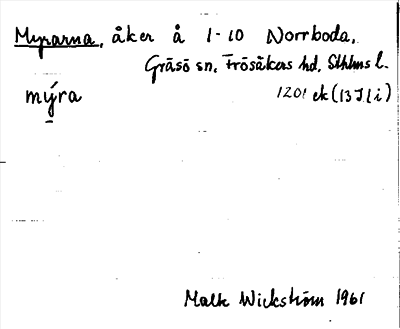 Myrarna, åker å 1-10 Norrboda,
Gräsö sn, Frösåkers hd, Sthlms l.
mýra 1201 ek (13I1i)
Malk Wickström 1961